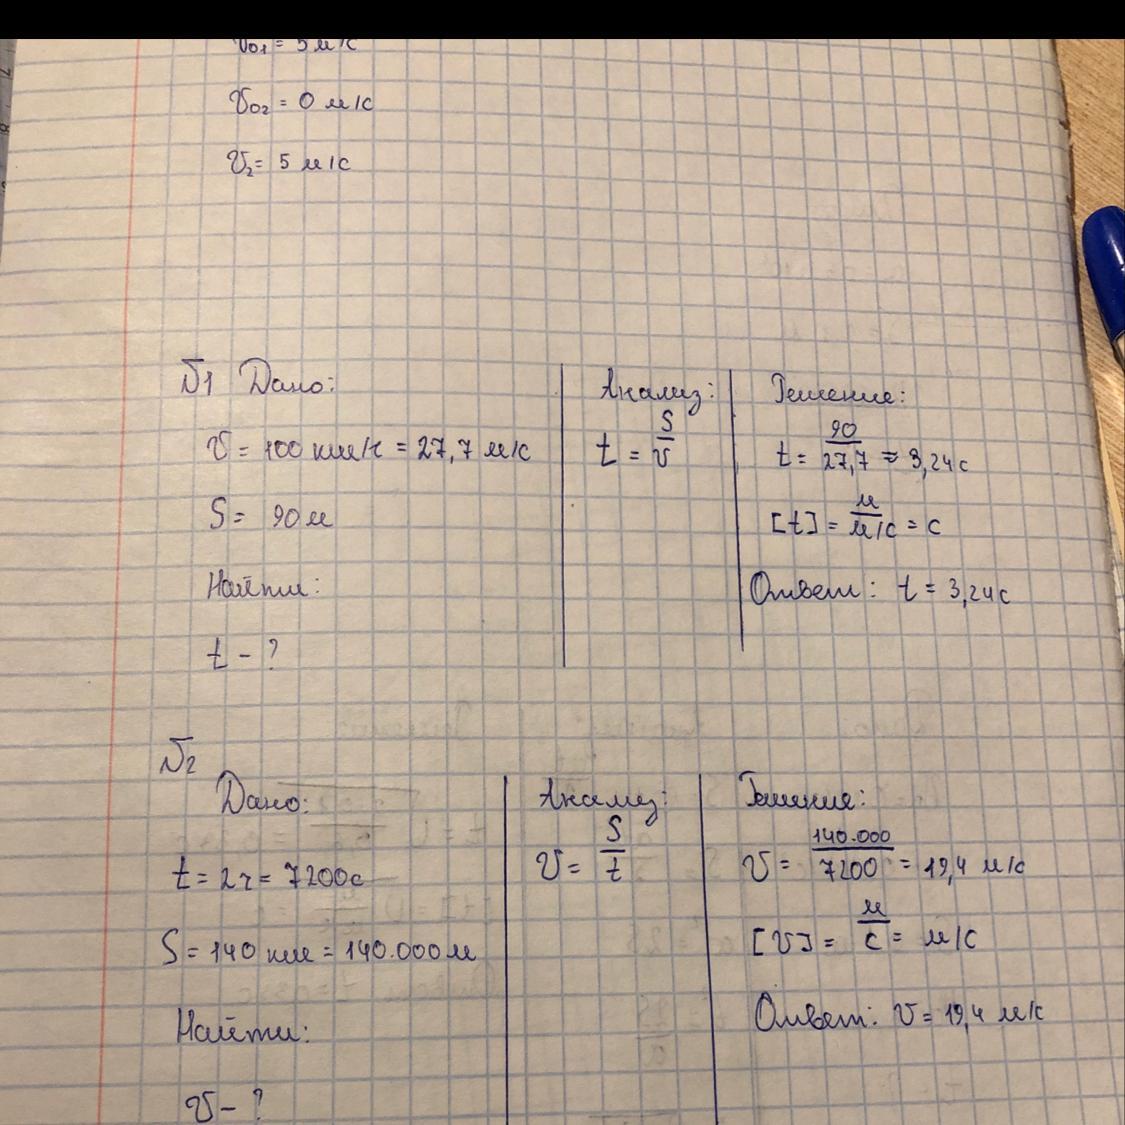 V₀₁ = 5 м/с
V₀₂ = 0 м/с
V₂ = 5 м/с
№1 Дано:
V = 100 км/ч = 27,7 м/с
S = 90 м
Найти:
t - ?
Анализ:
t = S/V
Решение:
t = 90/27,7 ≈ 3,24 с
[t] = м/м/с = с
Ответ: t = 3,24 с
№2
Дано:
t = 2ч = 7200с
S = 140 км = 140.000 м
Найти:
V - ?
Анализ:
V = S/t
Решение:
V = 140.000/7200 = 19,4 м/с
[V] = м/с = м/с
Ответ: V = 19,4 м/с